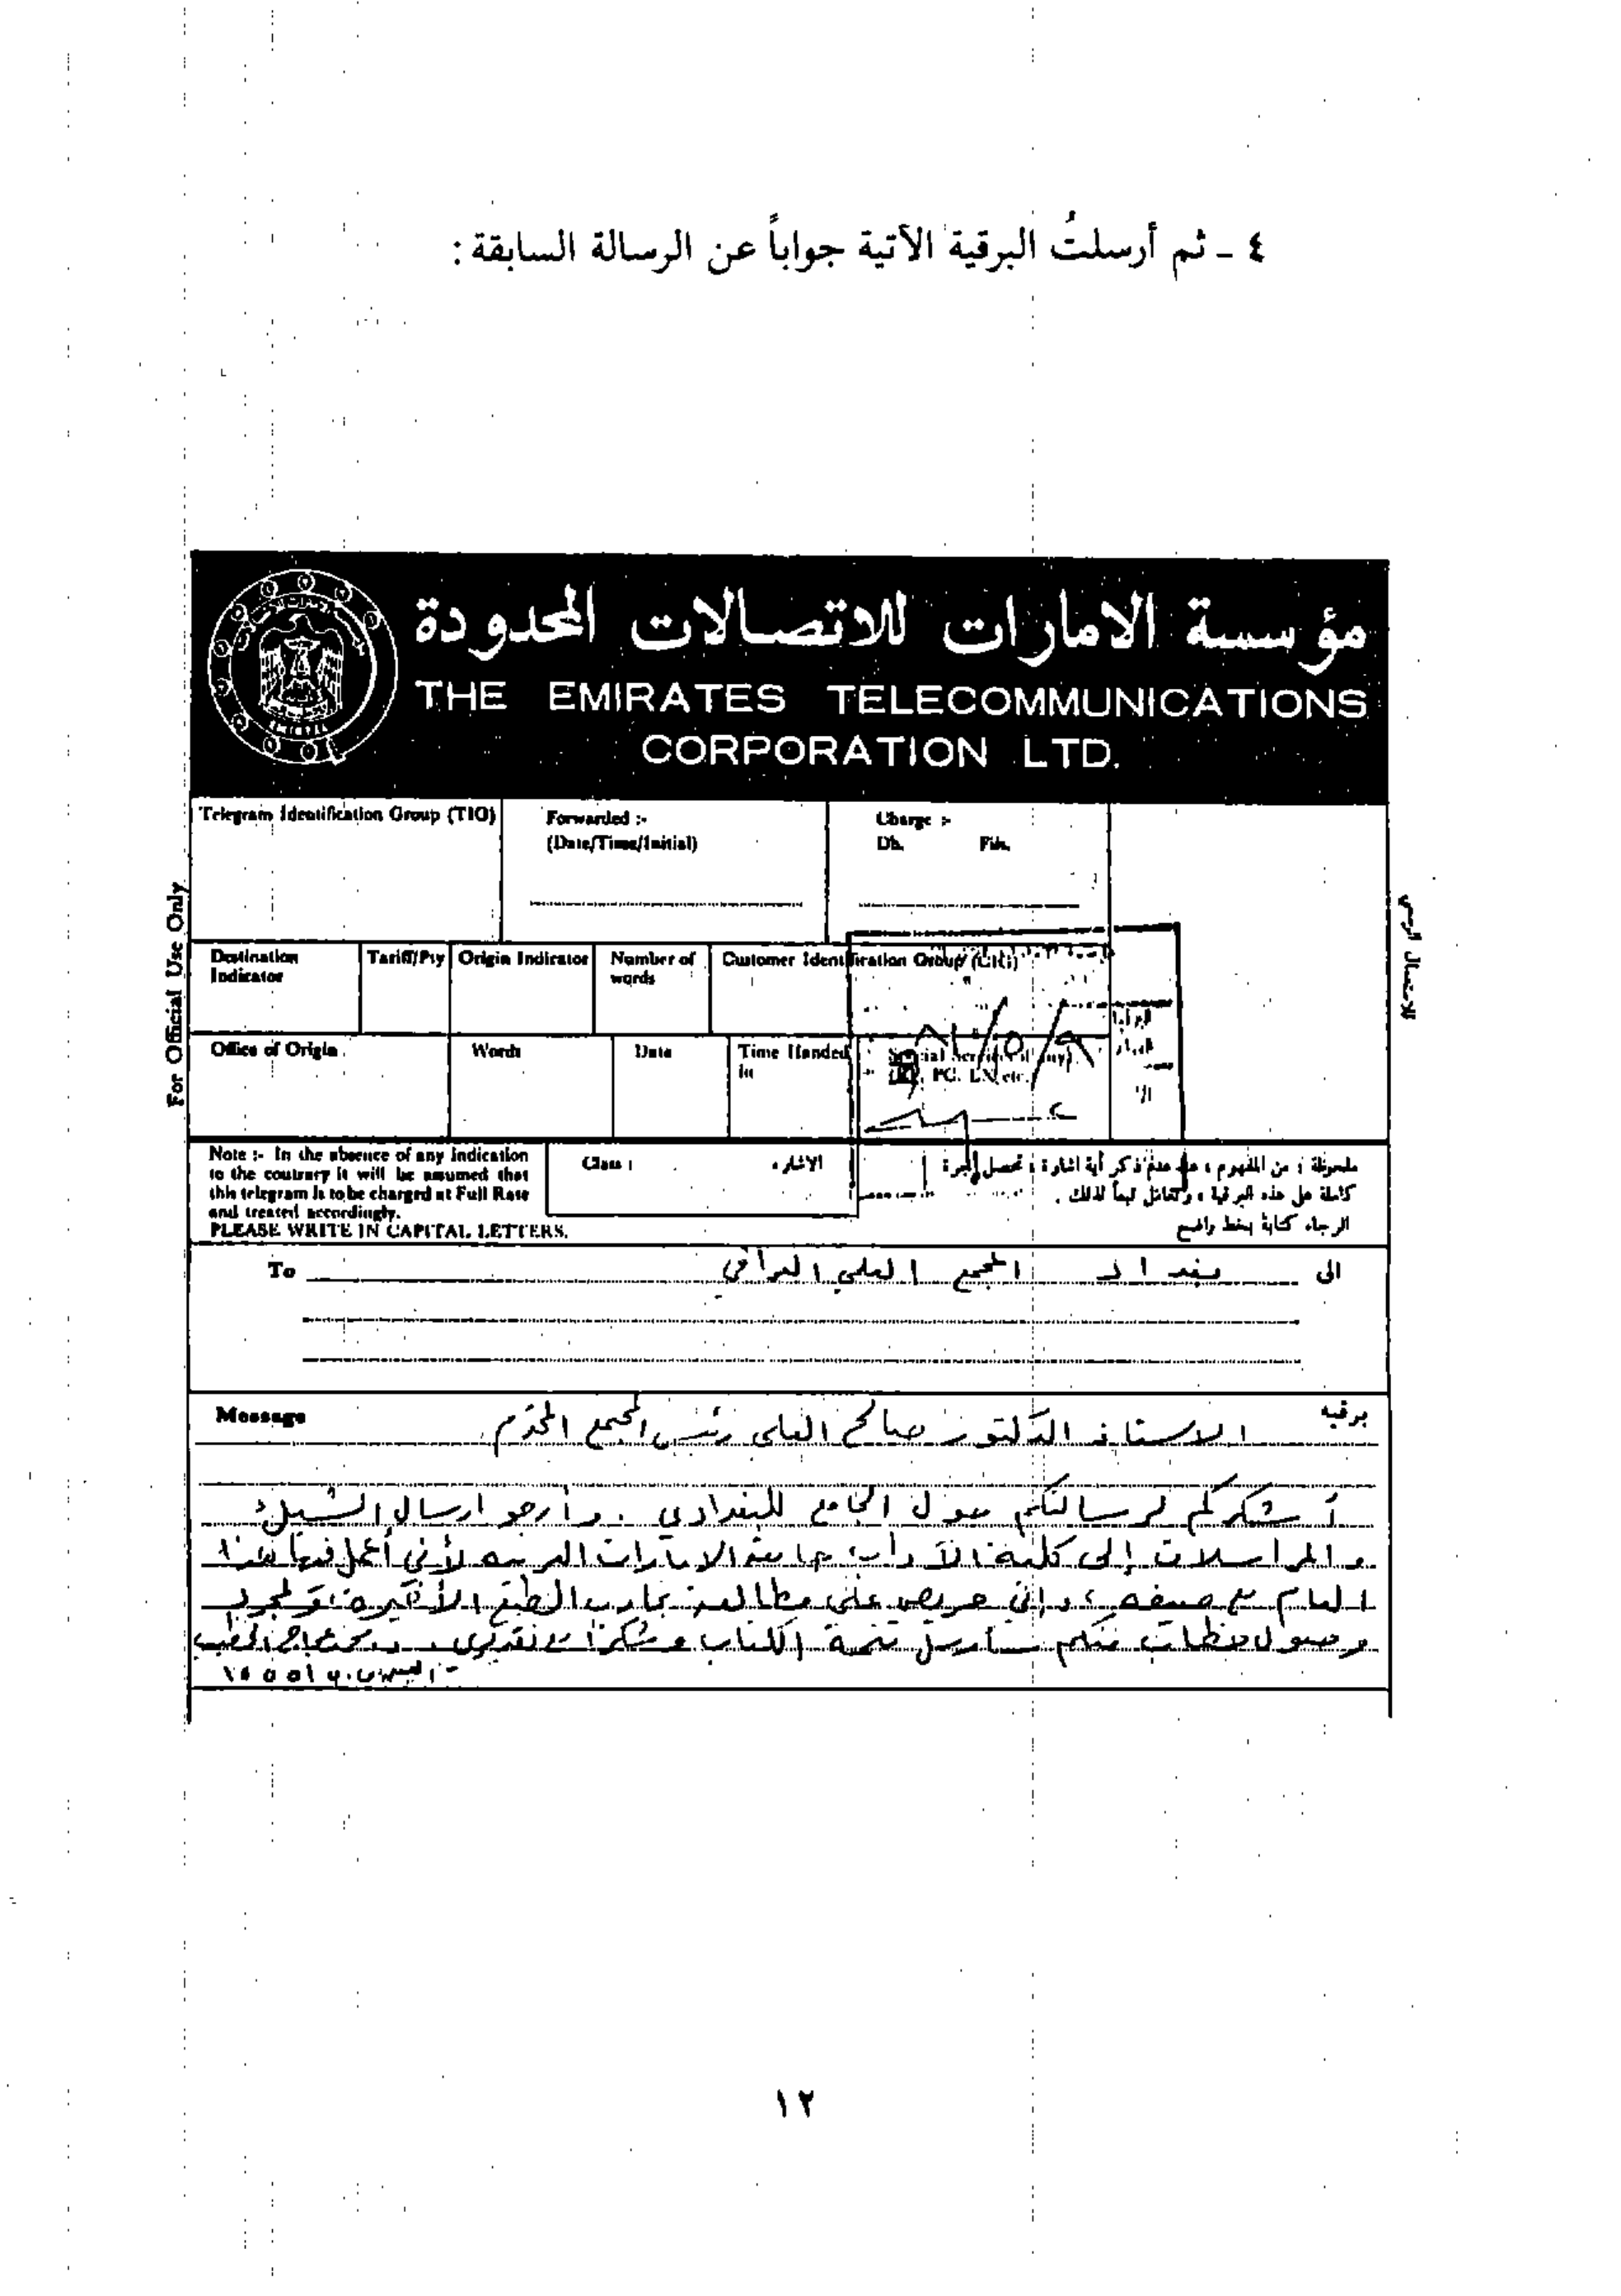 ٤ ـ ثم أرسلتُ البرقية الآتية جواباً عن الرسالة السابقة :
مؤسسة الامارات للاتصالات المحدودة
THE EMIRATES TELECOMMUNICATIONS
CORPORATION LTD.
Telegram Identification Group (TIG) Forwarded :- Charge :-
(Date/Time/Initial) Dh. Fils.
For Official Use Only
Destination Indicator Tariff/Pty Origin Indicator Number of words Customer Identification Group (CIG)
Office of Origin Words Date Time Handed in
Note :- In the absence of any indication
to the contrary it will be assumed that
this telegram is to be charged at Full Rate
and treated accordingly.
PLEASE WRITE IN CAPITAL LETTERS.
Class :
ملحوظة : من المفهوم ، عدم ذكر أية اشارة ، تحصل
كاملة على هذه البرقية ، وتعامل تبعاً لذلك .
الرجاء كتابة بخط واضح
To بغداد المجمع العلمي العراقي الى
Message برقية
الاستاذ الدكتور صالح العلي رئيس المجمع المحترم
أشكركم لرسالتكم حول الجامع للبغدادي . وأرجو ارسال
والمراسلات إلى كلية الآداب جامعة الامارات العربية لأني أعمل فيها هذا
العام مع صيفه ، وإني حريص على مطالعة تجارب الطبع الأخيرة ،
وصول منكم سأرسل تتمة الكتاب وشكرا مع تقديري
١٢